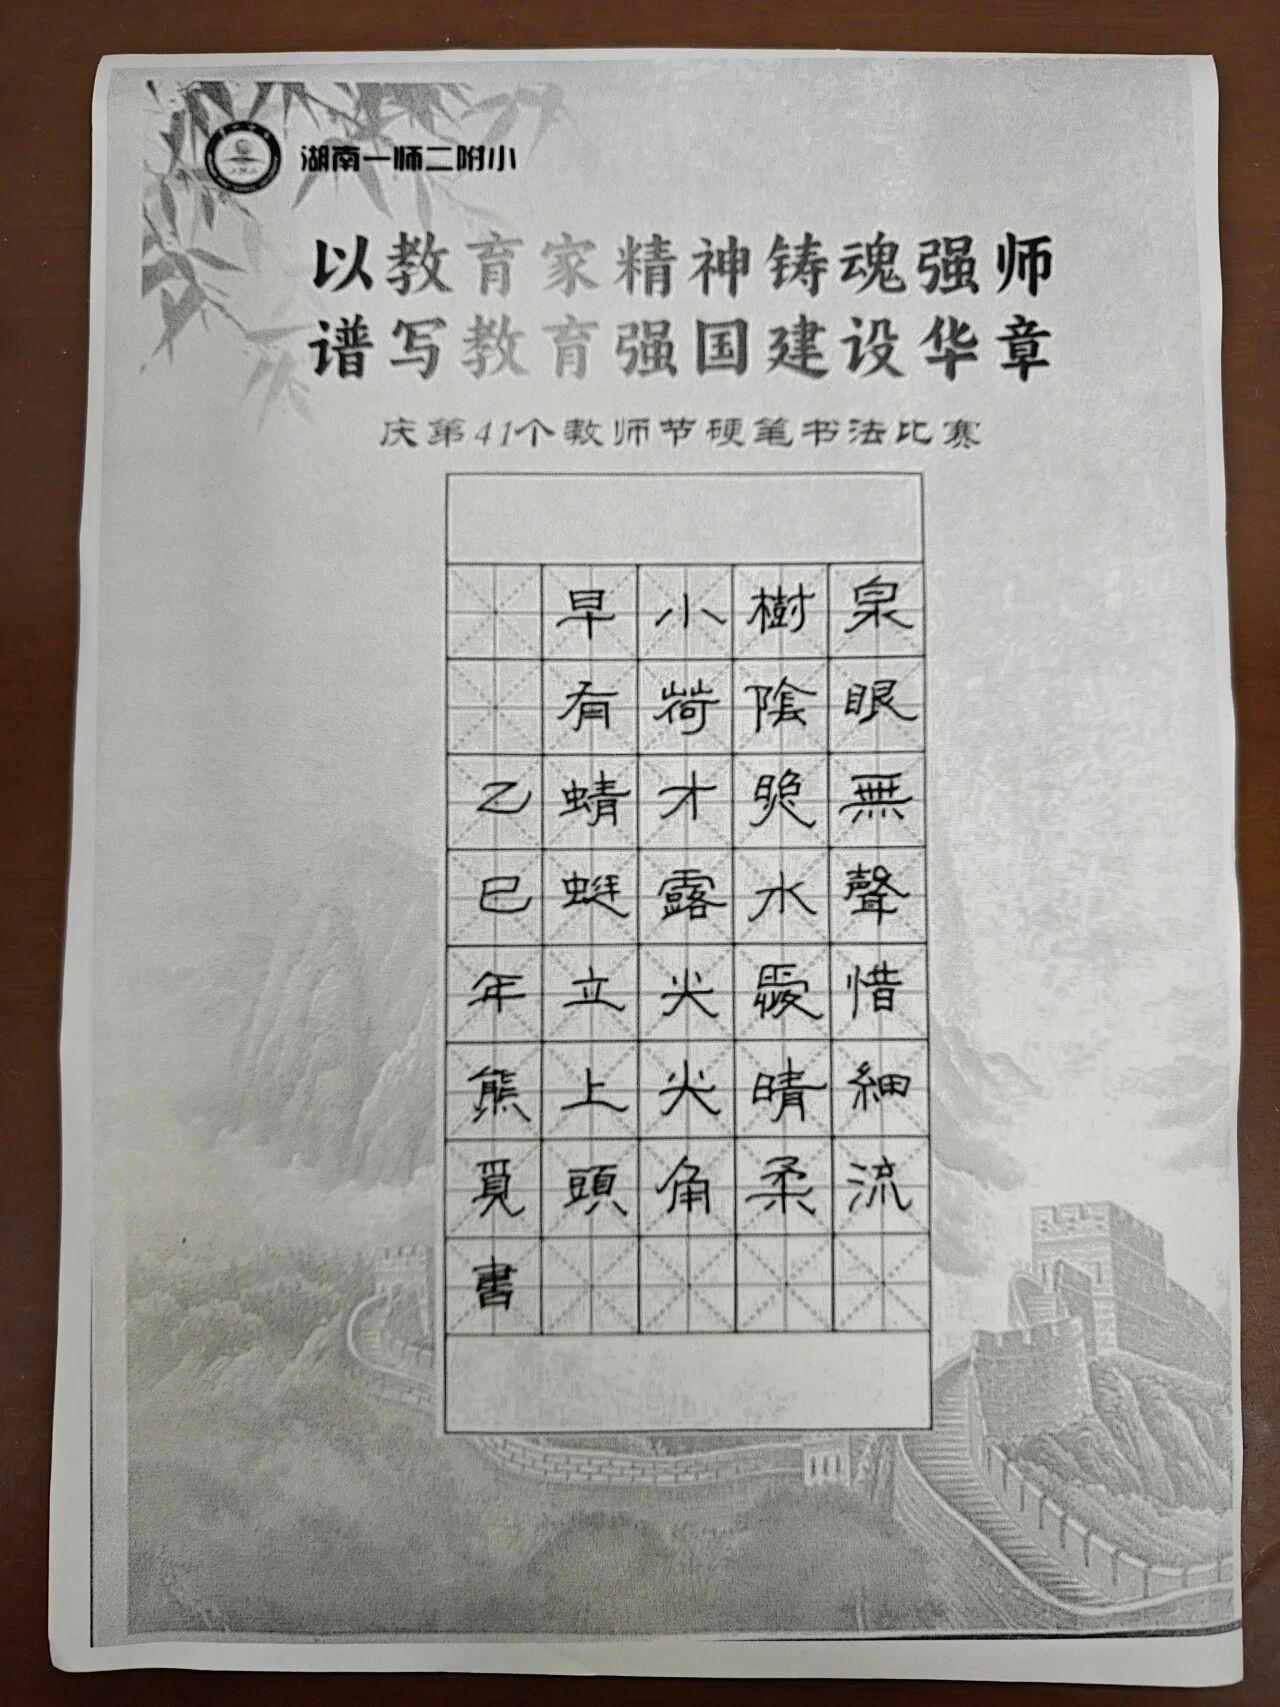 湖南一师二附小
以教育家精神铸魂强师
谱写教育强国建设华章
庆第41个教师节硬笔书法比赛
泉眼無聲惜細流
樹陰照水愛晴柔
小荷才露尖尖角
早有蜻蜓立上頭
乙巳年熊覓書